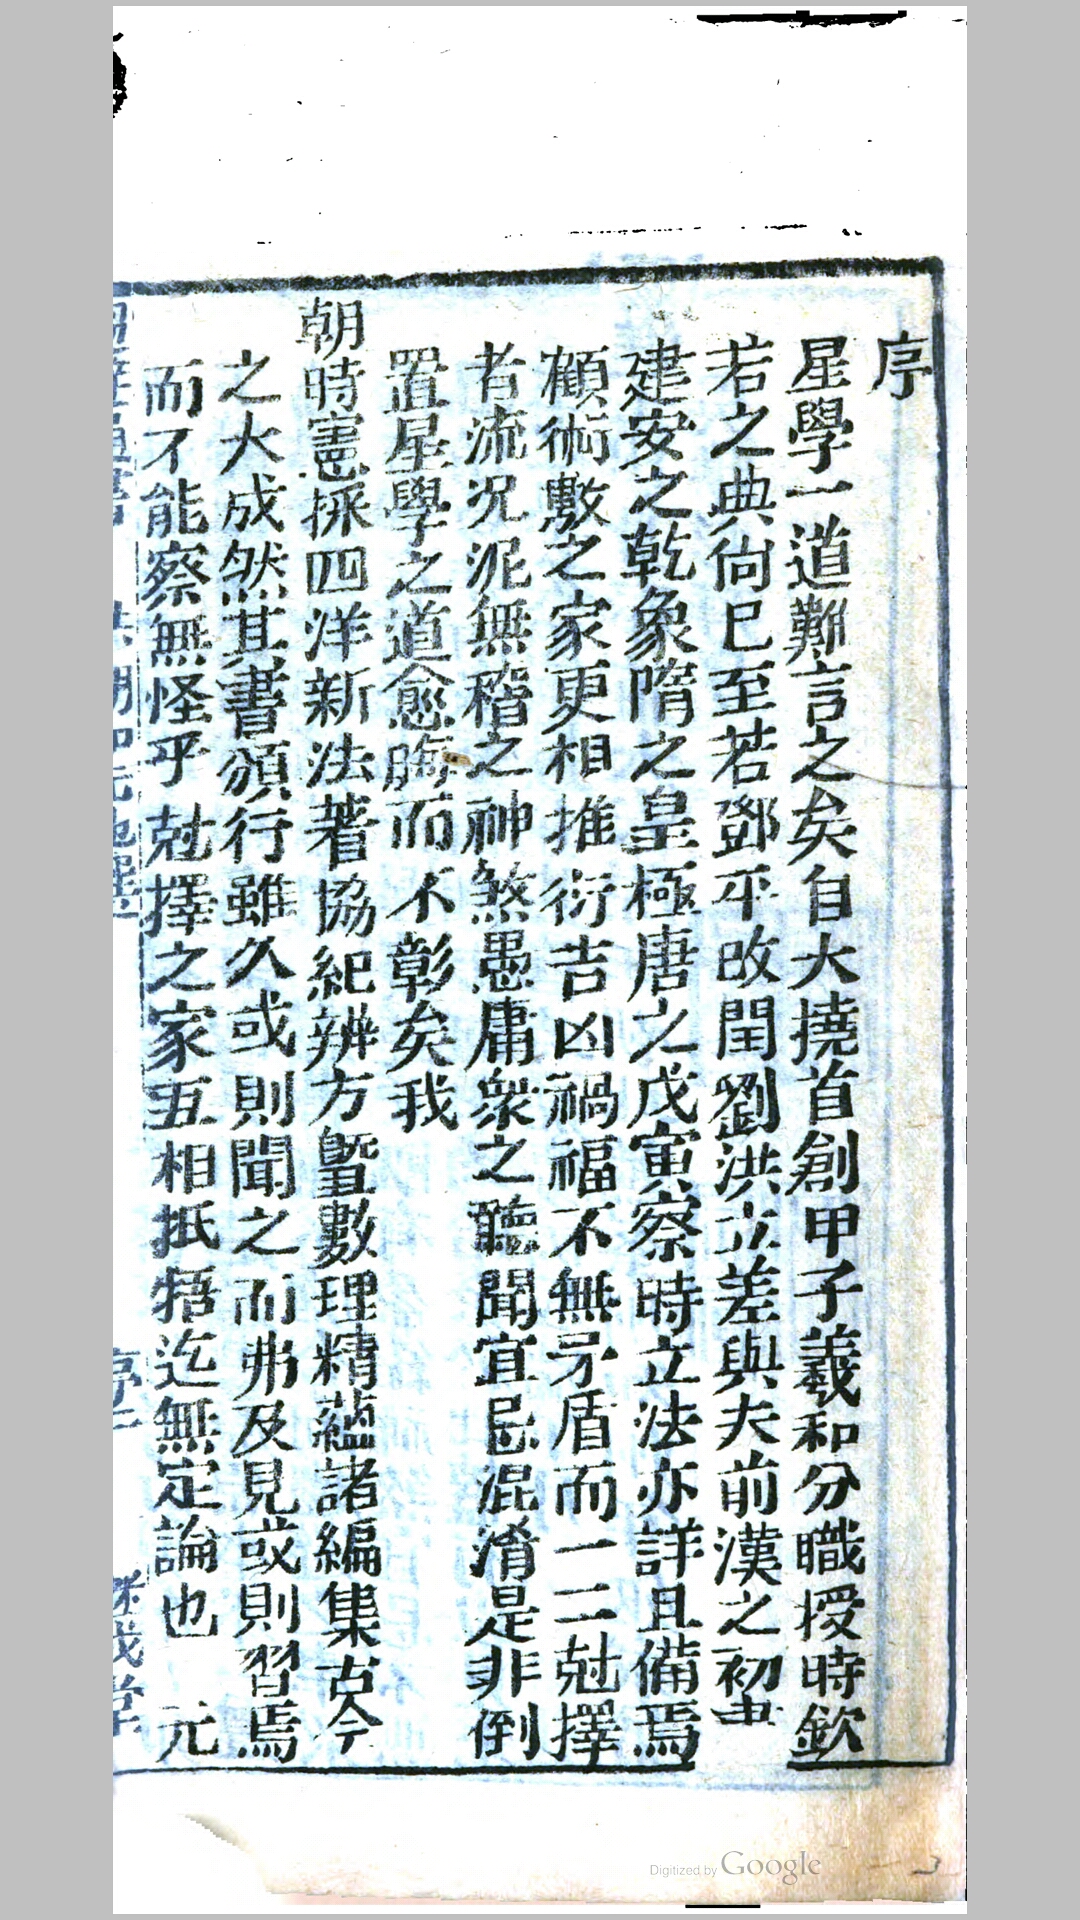 序
星學一道難言之矣自大撓首創甲子羲和分職授時欽
若之典尙巳至若鄧平改閏劉洪立差與夫前漢之初
建安之乾象隋之皇極唐之戊寅察時立法亦詳且備焉
顧術數之家更相推衍吉凶禍福不無矛盾而一二尅擇
者流况泥無稽之神煞愚庸衆之聽聞宜忌混淆是非倒
置星學之道愈晦而不彰矣我
朝時憲採四洋新法著協紀辨方曁數理精蘊諸編集古今
之大成然其書頒行雖久或則聞之而弗及見或則習焉
而不能察無怪乎尅擇之家互相抵牾迄無定論也 元
序
堂
Digitized by Google
3